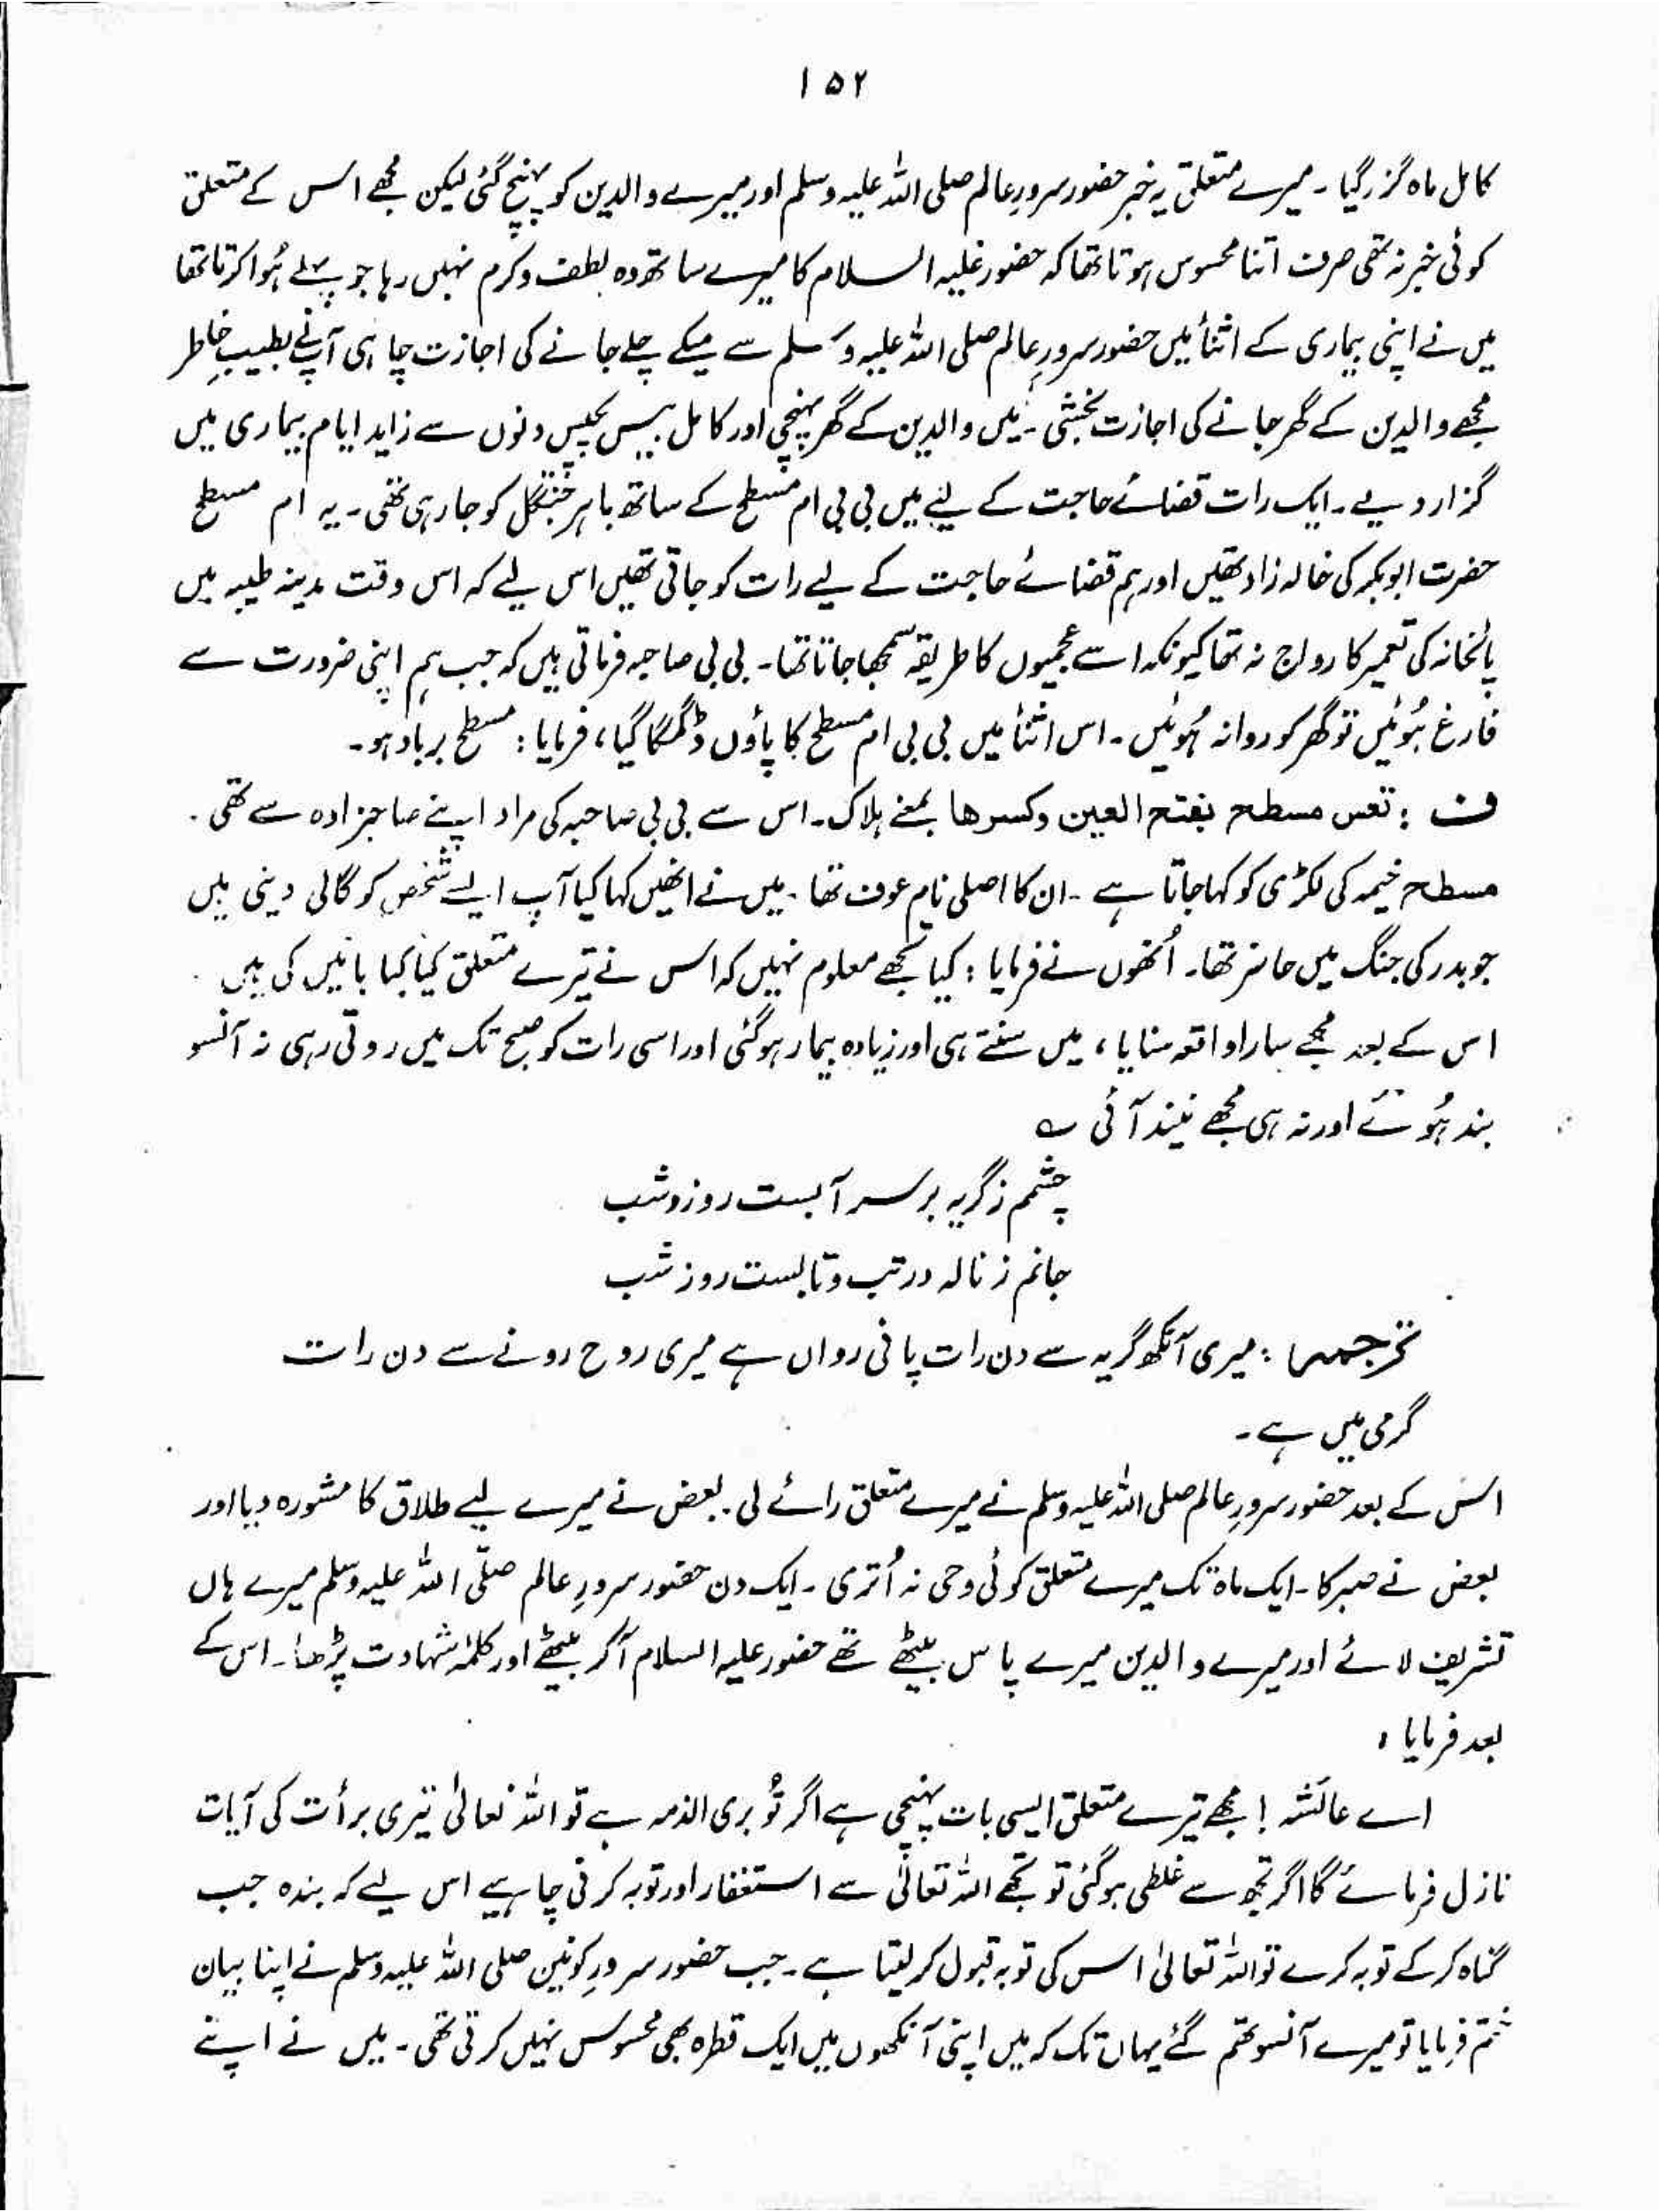 ۱۵۲
کامل ماہ گزر گیا ۔ میرے متعلق یہ خبر حضور سرورِ عالم صلی اللہ علیہ وسلم اور میرے والدین کو پہنچ گئی لیکن مجھے اس کے متعلق
کوئی خبر نہ تھی صرف اتنا محسوس ہوتا تھا کہ حضور علیہ السلام کا میرے ساتھ وہ لطف و کرم نہیں رہا جو پہلے ہُوا کرتا تھا
میں نے اپنی بیماری کے اثنأ میں حضور سرورِ عالم صلی اللہ علیہ وسلم سے میکے چلے جانے کی اجازت چاہی آپ نے بطیبِ خاطر
مجھے والدین کے گھر جانے کی اجازت بخشی ۔ میں والدین کے گھر پہنچی اور کامل بیس پچیس دنوں سے زاید ایام بیماری میں
گزار دیے ۔ ایک رات قضائے حاجت کے لیے میں بی بی ام مسطح کے ساتھ باہر جنگل کو جا رہی تھی ۔ یہ اُم مسطح
حضرت ابوبکر کی خالہ زاد تھیں اور ہم قضائے حاجت کے لیے رات کو جاتی تھیں اس لیے کہ اس وقت مدینہ طیبہ میں
پائخانہ کی تعمیر کا رواج نہ تھا کیونکہ اسے عجمیوں کا طریقہ سمجھا جاتا تھا ۔ بی بی صاحبہ فرماتی ہیں کہ جب ہم اپنی ضرورت سے
فارغ ہُوئیں تو گھر کو روانہ ہُوئیں ۔ اس اثنأ میں بی بی ام مسطح کا پاؤں ڈگمگا گیا ، فرمایا : مسطح برباد ہو ۔
ف : تعس مسطح بفتح العین وکسرھا بمعنے ہلاک ۔ اس سے بی بی صاحبہ کی مراد اپنے صاحبزادہ سے تھی ۔
مسطح خیمہ کی لکڑی کو کہا جاتا ہے ۔ ان کا اصلی نام عوف تھا ۔ میں نے انھیں کہا کیا آپ ایسے شخص کو گالی دیتی ہیں
جو بدر کی جنگ میں حاضر تھا ۔ اُنھوں نے فرمایا : کیا تجھے معلوم نہیں کہ اس نے تیرے متعلق کیا کیا باتیں کی ہیں ۔
اس کے بعد مجھے سارا واقعہ سنایا ، میں سنتے ہی اور زیادہ بیمار ہو گئی اور اسی رات کو صبح تک میں روتی رہی نہ آنسو
بند ہُوئے اور نہ ہی مجھے نیند آئی ؎
چشمم ز گریہ بر سر آبست روز و شب
جانم ز نالہ در تب و تابست روز شب
ترجمہ : میری آنکھ گریہ سے دن رات پانی رواں ہے میری روح رونے سے دن رات
گرمی میں ہے ۔
اس کے بعد حضور سرورِ عالم صلی اللہ علیہ وسلم نے میرے متعلق رائے لی ۔ بعض نے میرے لیے طلاق کا مشورہ دیا اور
بعض نے صبر کا ۔ ایک ماہ تک میرے متعلق کوئی وحی نہ اُتری ۔ ایک دن حضور سرورِ عالم صلّی اللہ علیہ وسلم میرے ہاں
تشریف لائے اور میرے والدین میرے پاس بیٹھے تھے حضور علیہ السلام آ کر بیٹھے اور کلمۂ شہادت پڑھا ۔ اس کے
بعد فرمایا :
اے عائشہ ! مجھے تیرے متعلق ایسی بات پہنچی ہے اگر تُو بری الذمہ ہے تو اللہ تعالیٰ تیری برأت کی آیات
نازل فرمائے گا اگر تجھ سے غلطی ہو گئی تو تجھے اللہ تعالیٰ سے استغفار اور توبہ کرنی چاہیے اس لیے کہ بندہ جب
گناہ کر کے توبہ کرے تو اللہ تعالیٰ اس کی توبہ قبول کر لیتا ہے ۔ جب حضور سرورِ کونین صلی اللہ علیہ وسلم نے اپنا بیان
ختم فرمایا تو میرے آنسو تھم گئے یہاں تک کہ میں اپنی آنکھوں میں ایک قطرہ بھی محسوس نہیں کرتی تھی ۔ میں نے اپنے